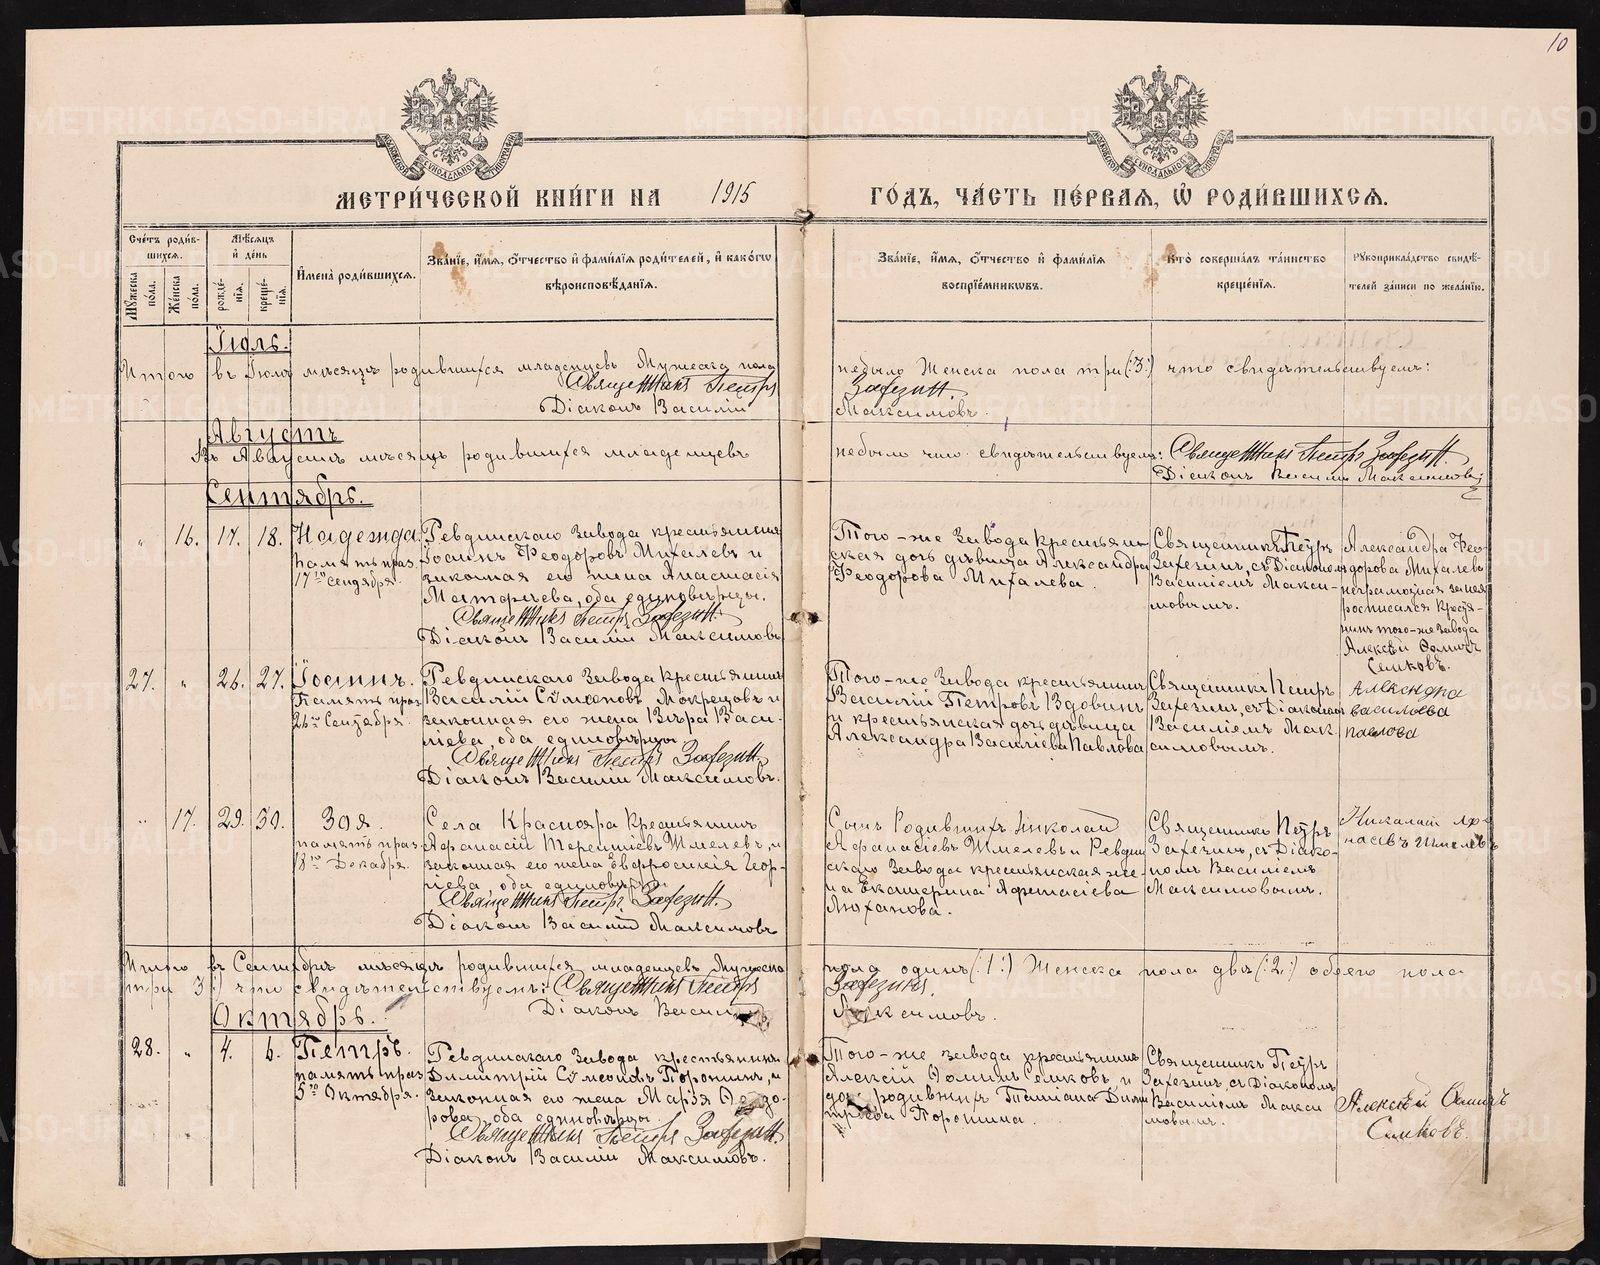 10
МЕТРИЧЕСКОЙ КНИГИ НА 1915 ГОДЪ, ЧАСТЬ ПЕРВАЯ, Ѡ РОДИВШИХСЯ.
Счетъ родив-
шихся.
Мужеска пола.
Женска пола.
Мѣсяцъ и день
рожде-
нія.
креще-
нія.
Имена родившихся.
Званіе, имя, отчество и фамилія родителей, и какогѡ
вѣроисповѣданія.
Званіе, имя, отчество и фамилія
воспріемникѡвъ.
Кто совершалъ таинство
крещенія.
Рукоприкладство свидѣ-
телей записи по желанію.
Іюль.
Итого въ Іюлѣ мѣсяцѣ родившихся младенцевъ Мужеска пола
небыло Женска пола три (:3:) что свидѣтельствуемъ:
Священникъ Петръ Захезин.
Діаконъ Василій Максимовъ.
Августъ
Въ Августѣ мѣсяцѣ родившихся младенцевъ
небыло что свидѣтельствуемъ: Священникъ Петръ Захезин.
Діаконъ Василій Максимовъ
Сентябрь.
" 16. 17. 18.
Надежда.
Память праз.
17го Сентября.
Ревдинскаго Завода крестьянинъ
Іоаннъ Феодоровъ Михалевъ и
законная его жена Анастасія
оба единовѣрцы.
Священникъ Петръ Захезин.
Діаконъ Василій Максимовъ
Того-же Завода крестьян-
ская дочь дѣвица Александра
Феодорова Михалева.
Священникъ Петръ
Захезинъ, съ Діакономъ
Василіемъ Макси-
мовымъ.
Александра Фео-
дорова Михалева
неграмотная за нея
росписался крестья-
нинъ того-же Завода
Алексѣй Ѳомичъ
Семковъ.
27. " 26. 27.
Іоаннъ.
Память праз
26го Сентября.
Ревдинскаго Завода крестьянинъ
Василій Сѵмеоновъ Мокрецовъ и
законная его жена Вѣра Васи-
ліева, оба единовѣрцы.
Священникъ Петръ Захезин.
Діаконъ Василій Максимовъ.
Того-же Завода крестьянинъ
Василій Петровъ Вдовинъ
и крестьянская дочь дѣвица
Александра Василіева Павлова
Священникъ Петръ
Захезинъ, съ Діакономъ
Василіемъ Мак-
симовымъ.
Александра
васильева
павлова
" 17. 29. 30.
Зоя.
память праз.
18го Декабря.
Села Краснояра Крестьянинъ
Афанасій Терентіевъ Шмелевъ, и
законная его жена Евфросинія Геор-
гіева, оба единовѣрцы.
Священникъ Петръ Захезин.
Діаконъ Василій Максимовъ
Сынъ Родившихъ Николай
Афанасіевъ Шмелевъ и Ревдин-
скаго Завода крестьянская же-
на Екатерина Афанасіева
Люханова.
Священникъ Петръ
Захезинъ, съ Діако-
номъ Василіемъ
Максимовымъ.
Николай Афо-
насевъ Шмелевъ
Итого въ Сентябрѣ мѣсяцѣ родившихся младенцевъ Мужеска
пола одинъ (:1:) Женска пола двѣ (:2:) обоего пола
три 3:) что свидѣтельствуемъ: Священникъ Петръ
Захезинъ.
Діаконъ Василій
Максимовъ.
Октябрь.
28. " 4. 6.
Петръ.
память праз
5го Октября.
Ревдинскаго Завода крестьянинъ
Димитрій Сѵмеоновъ Поронинъ, и
законная его жена Марія Ѳеодо-
рова, оба единовѣрцы.
Священникъ Петръ Захезин
Діаконъ Василій Максимовъ.
Того-же завода крестьянинъ
Алексій Ѳоминъ Семковъ, и
дочь родившихъ Татіана Дими-
тріева Поронина.
Священникъ Петръ
Захезинъ, съ Діакономъ
Василіемъ Макси-
мовымъ.
Алексѣй Ѳомичъ
Семковъ.
METRIKI.GASO-URAL.RU